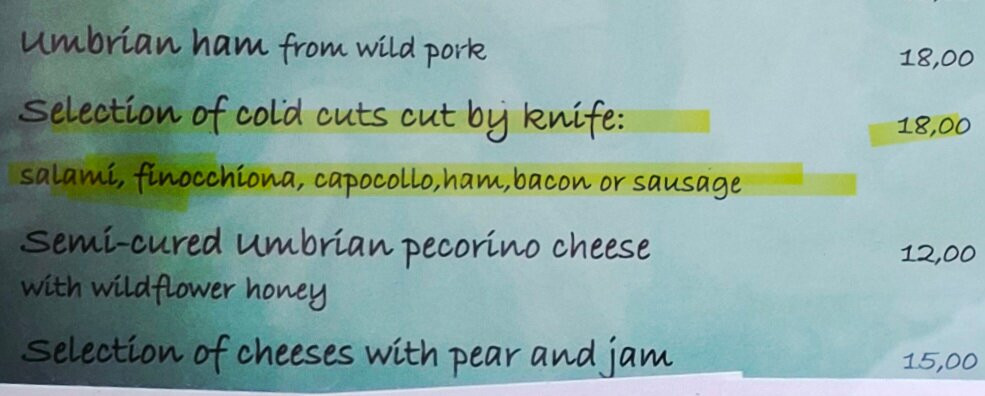 Umbrian ham from wild pork 18,00
Selection of cold cuts cut by knife: 18,00
salami, finocchiona, capocollo,ham,bacon or sausage
Semi-cured Umbrian pecorino cheese 12,00
with wildflower honey
Selection of cheeses with pear and jam 15,00